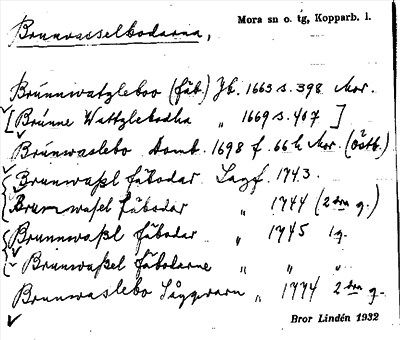 Brunvasselbodarna,
Mora sn o. tg, Kopparb. l.
Brúnnwatzleboo (fäb.) Jb. 1663 s. 398 Mor.
[Brúnne Wattzlebodha " 1669 s. 407]
Brúnwaslebo Domb. 1698 f. 66 h Mor. (Östb.)
Brunwaßl fäbodar Lagf. 1743.
Brunwaßel fäbodar " 1744 (2 stn g.)
Brunnwaßl fäbodar " 1745 1 g.
" Brunwaßel fäbodarne " " "
Brunwaslebo Låggvarn " 1774 2 stn g.
Bror Lindén 1932